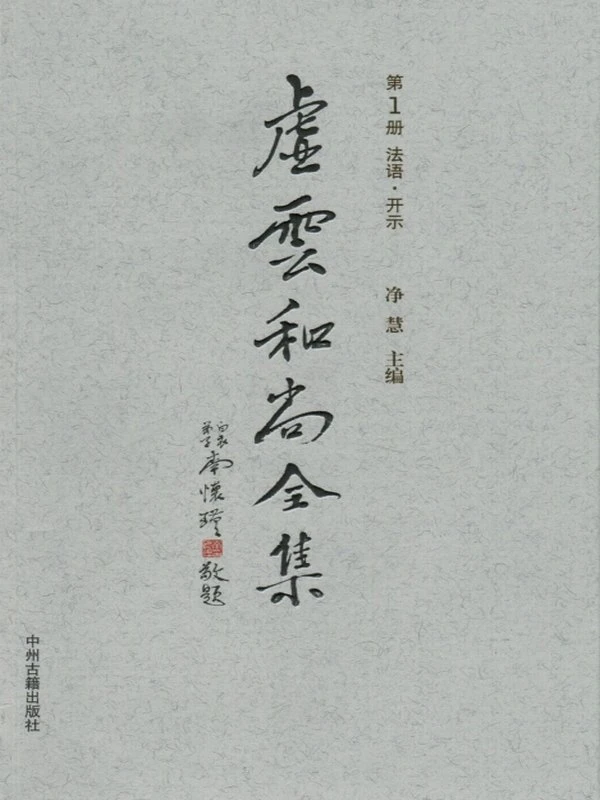 第1册 法语·开示
净慧 主编
虚雲和尚全集
白衣
弟子
南懷瑾
敬题
中州古籍出版社